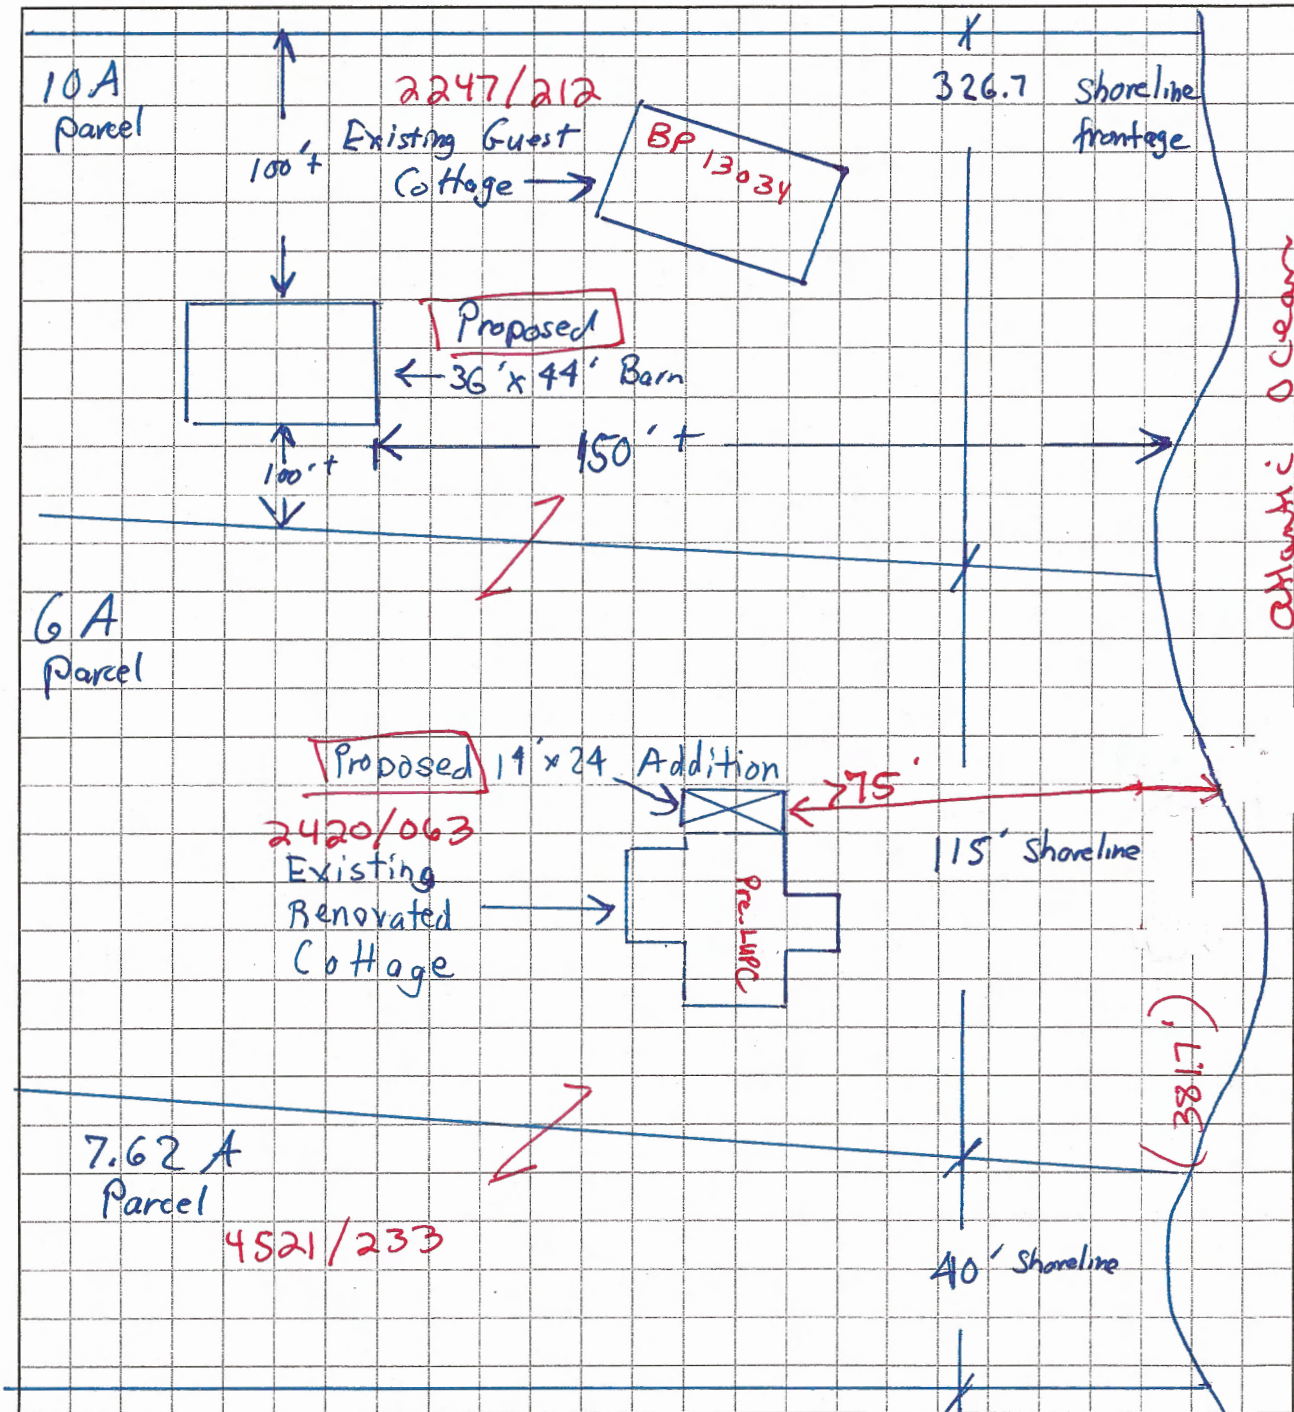 10A
parcel
100'+
2247/212
Existing Guest
Cottage
BP 13034
326.7 shoreline
frontage
Proposed
36'x44' Barn
100'+
150'+
Atlantic Ocean
6A
parcel
Proposed 14'x24 Addition
>75'
2420/063
Existing
Renovated
Cottage
Pre-LUPC
115' Shoreline
7.62 A
Parcel
4521/233
40' Shoreline